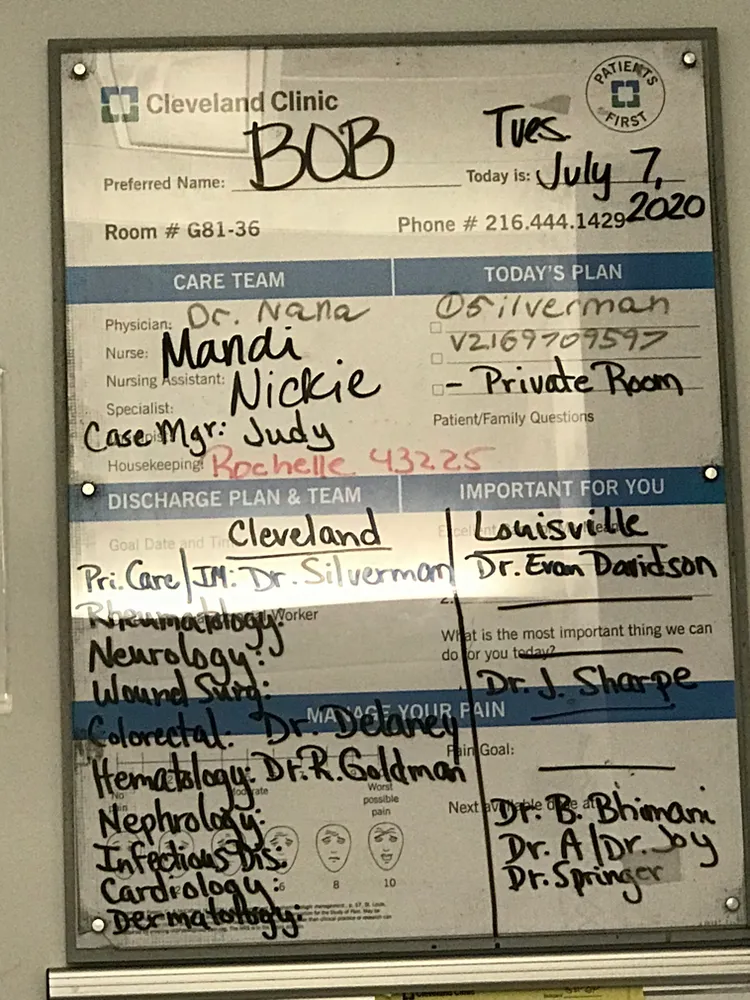 Cleveland Clinic
PATIENTS FIRST
Preferred Name: BOB
Today is: Tues. July 7, 2020
Room # G81-36
Phone # 216.444.1429
CARE TEAM
Physician: Dr. Nana
Nurse: Mandi
Nursing Assistant: Nickie
Specialist:
Case Mgr: Judy
Housekeeping: Rochelle 43225
TODAY'S PLAN
① Silverman
V2169709597
- Private Room
Patient/Family Questions
DISCHARGE PLAN & TEAM
Goal Date and
Cleveland
Pri. Care/IM: Dr. Silverman
Rheumatology:
Worker
Neurology:
Wound Surg:
Colorectal: Dr. Delaney
Hematology: Dr. R. Goldman
Nephrology:
Infectious Dis:
Cardiology:
Dermatology:
IMPORTANT FOR YOU
Louisville
Dr. Evan Davidson
2.
What is the most important thing we can
do for you today?
Dr. J. Sharpe
MANAGE YOUR PAIN
Pain Goal:
Next available dose at
Dr. B. Bhimani
Dr. A/Dr. Joy
Dr. Springer
No pain
Moderate
Worst
possible
pain
6 8 10